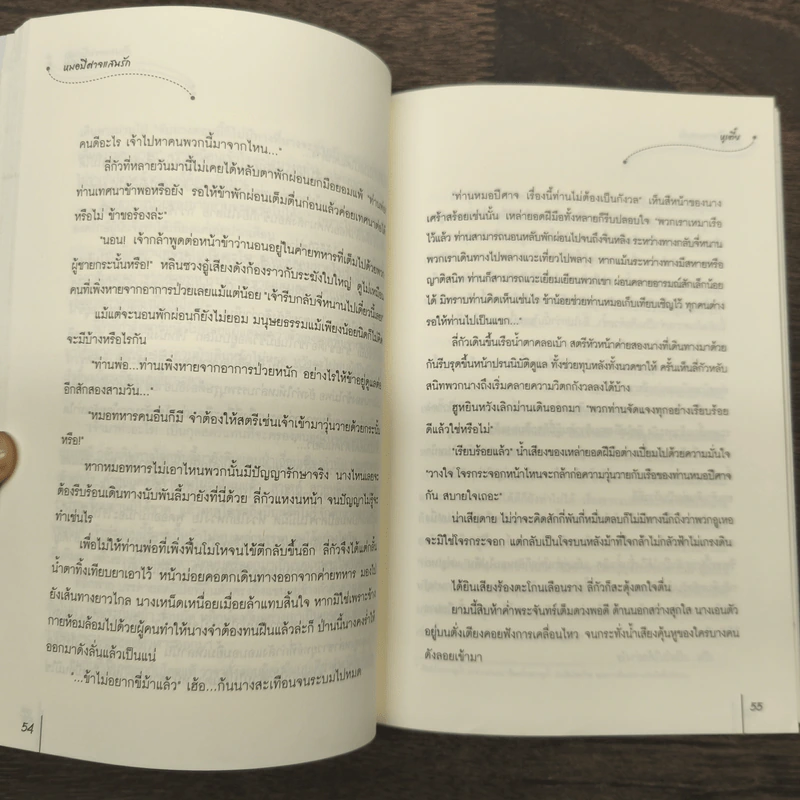 หมอปีศาจแสนรัก
คนดีอะไร เจ้าไปหาคนพวกนี้มาจากไหน..."
ลี่กัวที่หลายวันมานี้ไม่เคยได้หลับตาพักผ่อนยกมือยอมแพ้ "ท่านพ่อ
ท่านเทศนาข้าพอหรือยัง รอให้ข้าพักผ่อนเต็มตื่นก่อนแล้วค่อยเทศนาต่อได้
หรือไม่ ข้าขอร้องล่ะ"
"นอน! เจ้ากล้าพูดต่อหน้าข้าว่านอนอยู่ในค่ายทหารที่เต็มไปด้วยพวก
ผู้ชายกระนั้นหรือ!" หลินซวงอู๋เสียงดังก้องราวกับระฆังใบใหญ่ ดูไม่เหมือน
คนที่เพิ่งหายจากอาการป่วยเลยแม้แต่น้อย "เจ้ารีบกลับจี่หนานไปเดี๋ยวนี้เลย!"
แม้แต่จะนอนพักผ่อนก็ยังไม่ยอม มนุษยธรรมแม้เพียงน้อยนิดก็ไม่คิด
จะมีบ้างหรือไรกัน
"ท่านพ่อ...ท่านเพิ่งหายจากอาการป่วยหนัก อย่างไรให้ข้าอยู่ดูแลต่อ
อีกสักสองสามวัน..."
"หมอทหารคนอื่นก็มี จำต้องให้สตรีเช่นเจ้าเข้ามาวุ่นวายด้วยกระนั้น
หรือ!"
หากหมอทหารไม่เอาไหนพวกนั้นมีปัญญารักษาจริง นางไหนเลยจะ
ต้องรีบร้อนเดินทางนับพันลี้มายังที่นี่ด้วย ลี่กัวแหงนหน้า จนปัญญาไม่รู้จะ
ทำเช่นไร
เพื่อไม่ให้ท่านพ่อที่เพิ่งฟื้นโมโหจนไข้ตีกลับขึ้นอีก ลี่กัวจึงได้แต่กลั้น
น้ำตาทิ้งเทียบยาเอาไว้ หน้าม่อยคอตกเดินทางออกจากค่ายทหาร มองไป
ยังเส้นทางยาวไกล นางเหน็ดเหนื่อยเมื่อยล้าแทบสิ้นใจ หากมิใช่เพราะข้าง
กายห้อมล้อมไปด้วยผู้คนทำให้นางจำต้องทนฝืนแล้วล่ะก็ ป่านนี้นางคงร่ำไห้
ออกมาดังลั่นแล้วเป็นแน่
"...ข้าไม่อยากขี่ม้าแล้ว" เฮ้อ...ก้นนางสะเทือนจนระบมไปหมด
54
ชุเยี่ยน
"ท่านหมอปีศาจ เรื่องนี้ท่านไม่ต้องเป็นกังวล" เห็นสีหน้าของนาง
เศร้าสร้อยเช่นนั้น เหล่ายอดฝีมือทั้งหลายก็รีบปลอบใจ "พวกเราเหมาเรือ
ไว้แล้ว ท่านสามารถนอนหลับพักผ่อนไปจนถึงจินหลิง ระหว่างทางกลับจี่หนาน
พวกเราเดินทางไปพลางแวะเที่ยวไปพลาง หากแม้นระหว่างทางมีสหายหรือ
ญาติสนิท ท่านก็สามารถแวะเยี่ยมเยียนพวกเขา ผ่อนคลายอารมณ์สักเล็กน้อย
ได้ มิทราบท่านคิดเห็นเช่นไร ข้าน้อยช่วยท่านหมอเก็บเทียบเชิญไว้ ทุกคนต่าง
รอให้ท่านไปเป็นแขก..."
ลี่กัวเดินขึ้นเรือน้ำตาคลอเบ้า สตรีหัวหน้าค่ายสองนางที่เดินทางมาด้วย
กันรีบรุดขึ้นหน้าปรนนิบัติดูแล ทั้งช่วยทุบหลังทั้งนวดขาให้ ครั้นเห็นลี่กัวหลับ
สนิทพวกนางถึงเริ่มคลายความวิตกกังวลลงได้บ้าง
ฮูหยินหวังเลิกม่านเดินออกมา "พวกท่านจัดแจงทุกอย่างเรียบร้อย
ดีแล้วใช่หรือไม่"
"เรียบร้อยแล้ว" น้ำเสียงของเหล่ายอดฝีมือต่างเปี่ยมไปด้วยความมั่นใจ
"วางใจ โจรกระจอกหน้าไหนจะกล้าก่อความวุ่นวายกับเรือของท่านหมอปีศาจ
กัน สบายใจเถอะ"
น่าเสียดาย ไม่ว่าจะคิดสักกี่พันกี่หมื่นตลบก็ไม่มีทางนึกถึงว่าพวกอูเหอ
จะมิใช่โจรกระจอก แต่กลับเป็นโจรบนหลังม้าที่ใจกล้าไม่กลัวฟ้าไม่เกรงดิน
ได้ยินเสียงร้องตะโกนเลือนราง ลี่กัวก็สะดุ้งตกใจตื่น
ยามนี้สิบห้าค่ำพระจันทร์เต็มดวงพอดี ด้านนอกสว่างสุกใส นางเอนตัว
อยู่บนตั่งเตียงคอยฟังการเคลื่อนไหว จนกระทั่งน้ำเสียงคุ้นหูของใครบางคน
ดังลอยเข้ามา
55